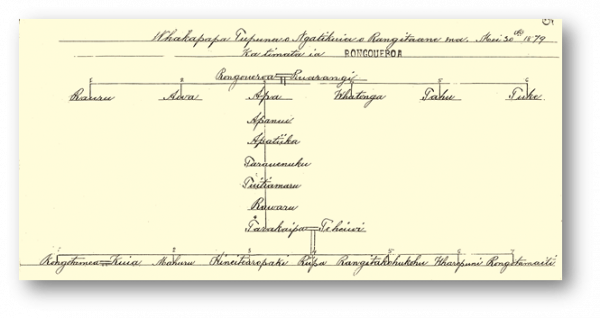 Whakapapa Tupuna o Ngatikuia o Rangitaane ma. Mei 30th 1879
Ka timata ia RONGOUEROA
Rongoueroa Ruarangi
Rauru Awa Apa Whatonga Tahu Tuke
Apanui
Apatiika
Tuitiamaru
Rawaru
Tarakaipa Tehiwi
Rongotamea Kuia Mahuru Hineitiaropaki Rupa Rangitakehukehu Kharopuni Rongotamaiti